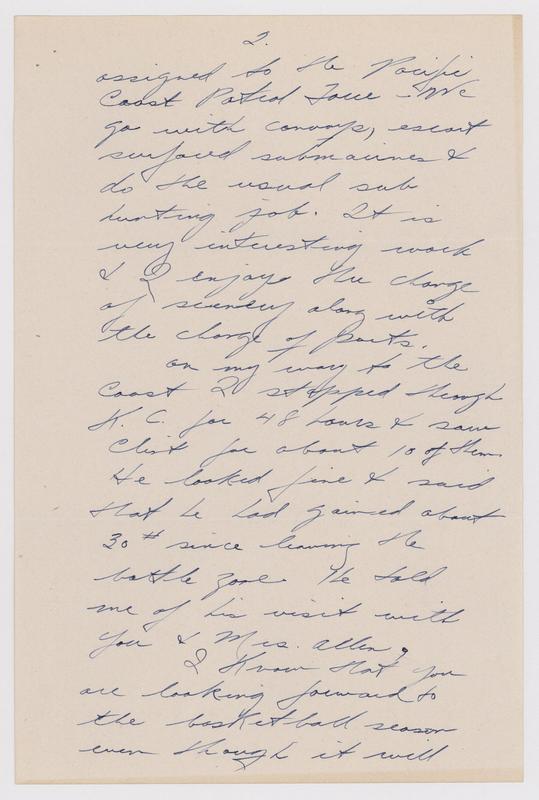 2.
assigned to the Pacific
Coast Patrol Force. We
go with convoys, escort
surfaced submarines &
do the usual sub
hunting job. It is
very interesting work
& I enjoy the change
of scenery along with
the change of ports.
On my way to the
Coast I stopped through
K. C. for 48 hours & saw
Clint for about 10 of them.
He looked fine & said
that he had gained about
30# since leaving the
battle zone. He told
me of his visit with
you & Mrs. Allen.
I know that you
are looking forward to
the basketball season
even though it will